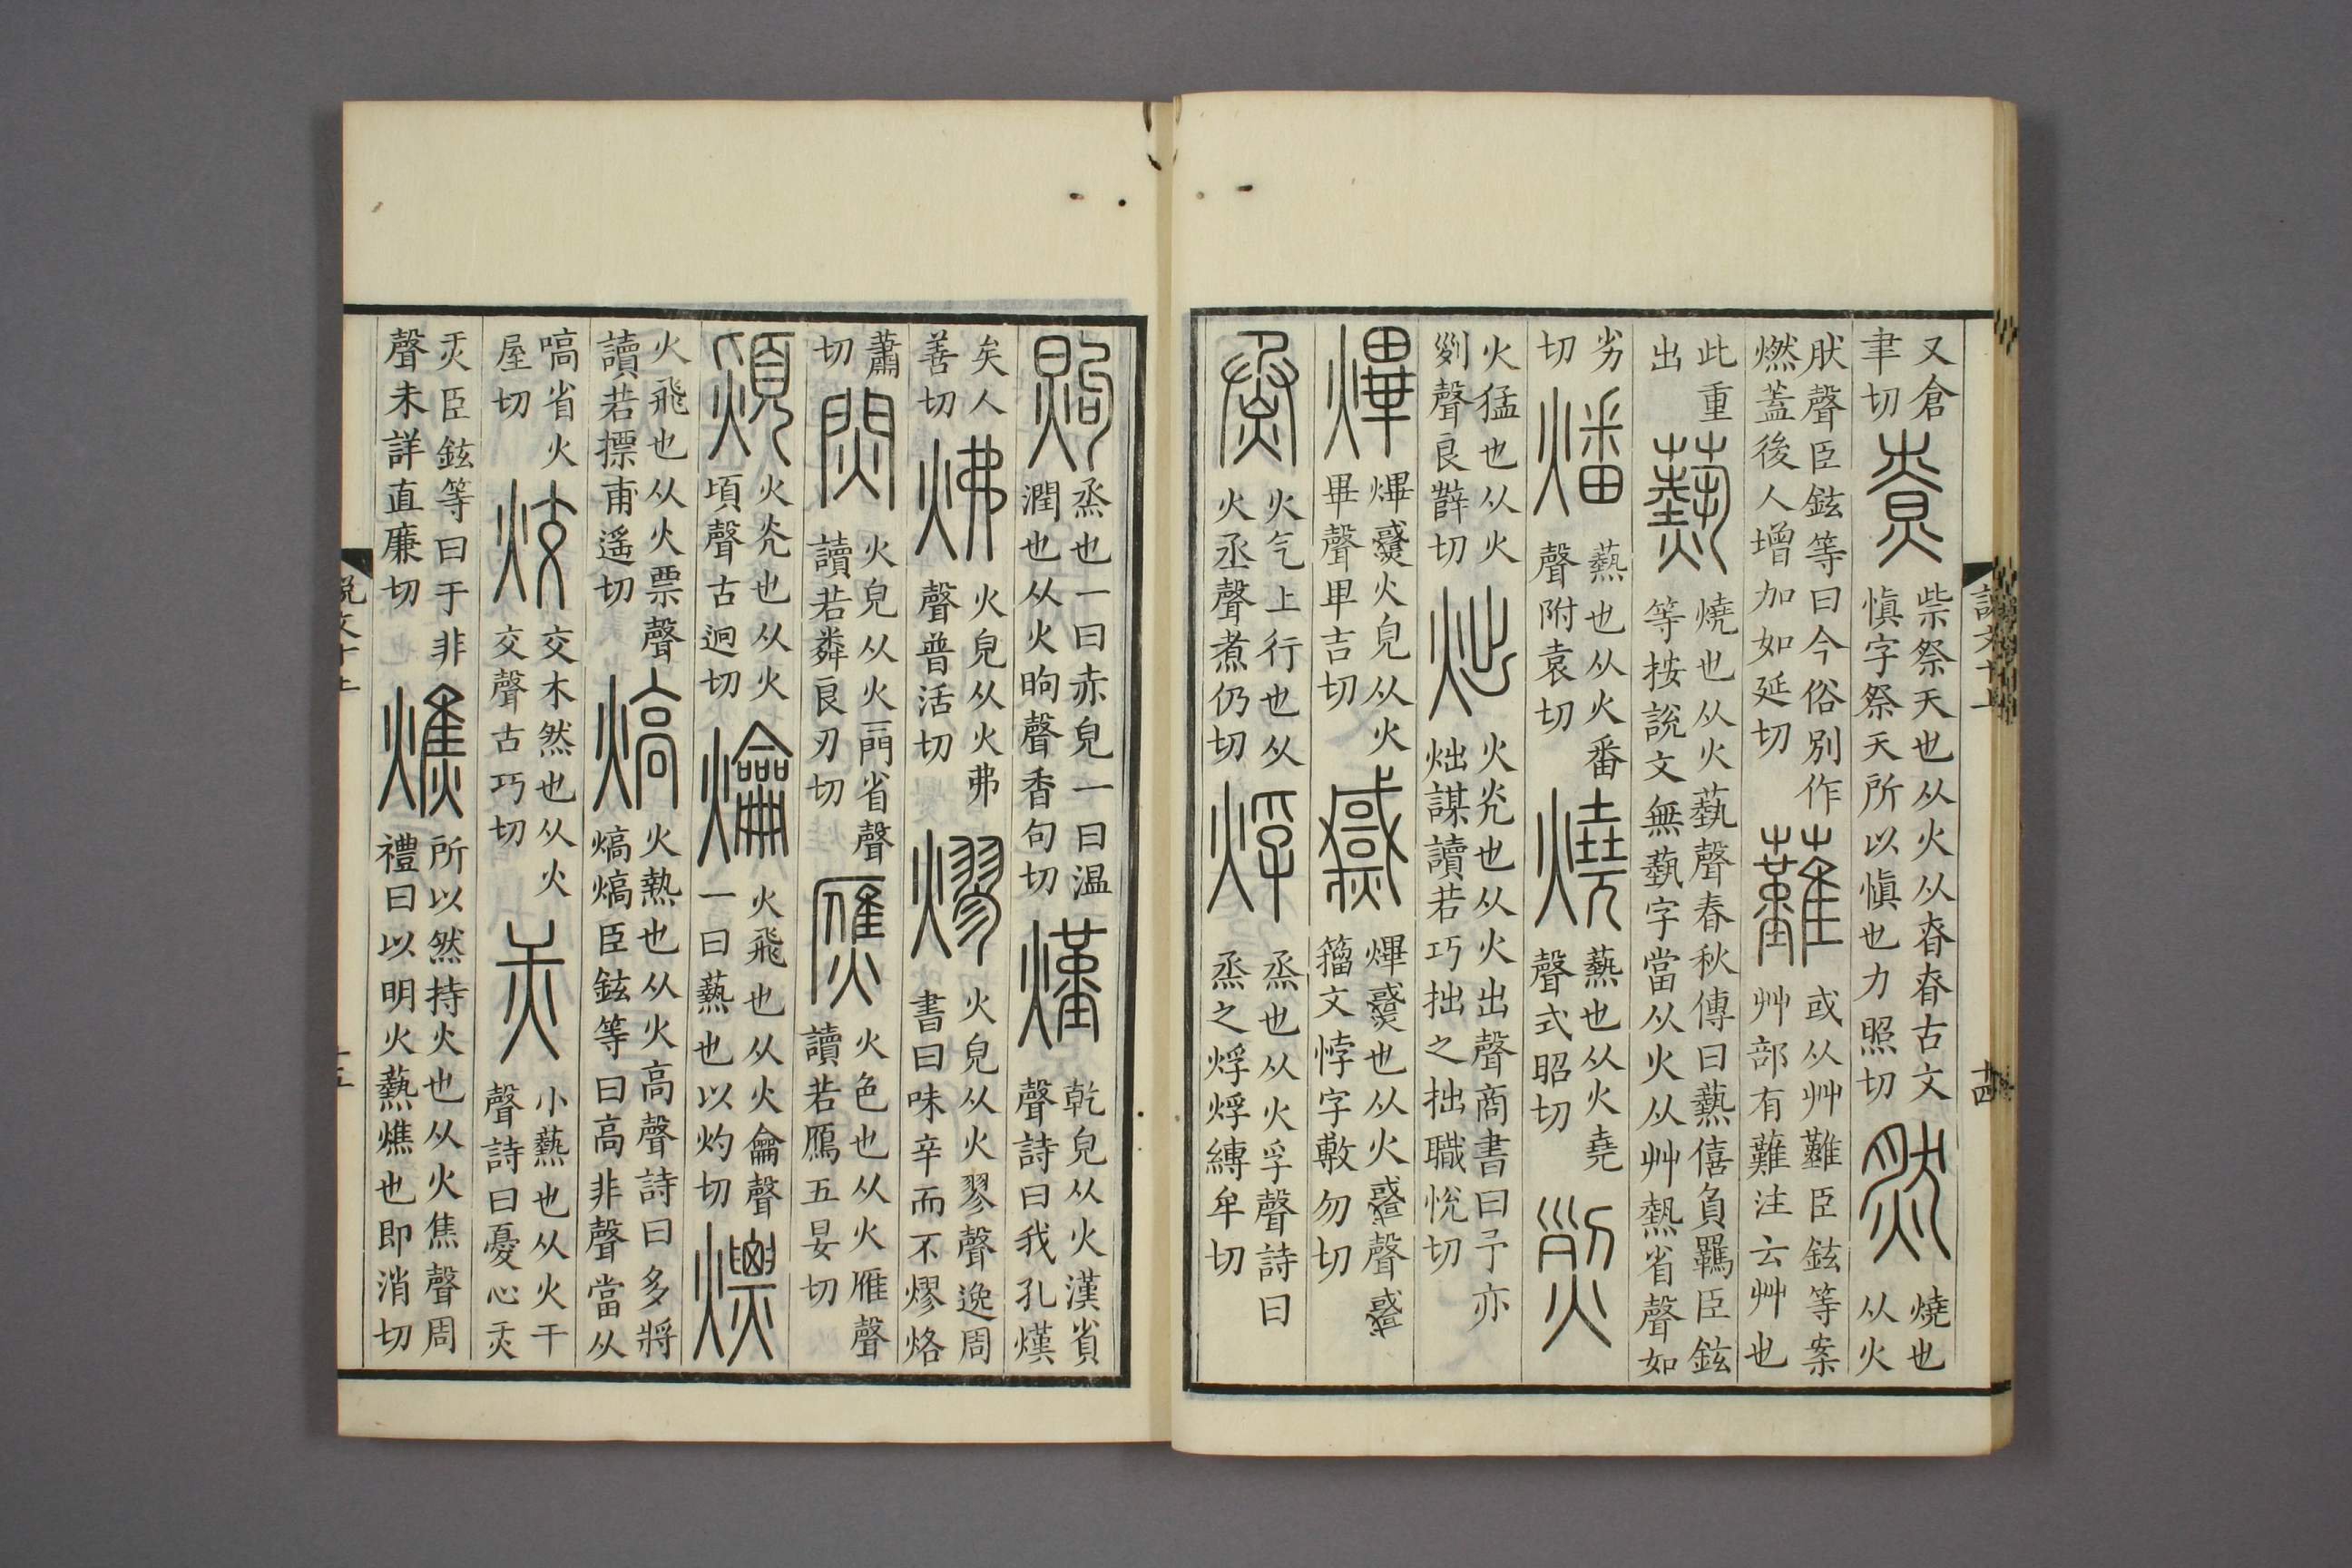 又倉聿切尞柴祭天也从火从昚昚古文慎字祭天所以慎也力照切然燒也从火
肰聲臣鉉等曰今俗別作燃蓋後人增加如延切䕼或从艸難臣鉉等案艸部有䕼注云艸也
此重出爇燒也从火蓺聲春秋傳曰爇僖負羈臣鉉等按說文無蓺字當从火从艸熱省聲如
劣切燔爇也从火番聲附袁切燒爇也从火堯聲式昭切烈
火猛也从火𠛱聲良辥切炪火光也从火出聲商書曰予亦炪謀讀若巧拙之拙職悅切
熚熚㷸火皃从火畢聲卑吉切㷸熚㷸也从火𧥺聲𧥺籒文悖字敷勿切
烝火气上行也从火丞聲煮仍切烰烝也从火孚聲詩曰烝之烰烰縛牟切
說文十上
十四
煦烝也一曰赤皃一曰温潤也从火昫聲香句切熯乾皃从火漢省聲詩曰我孔熯
矣人善切炥火皃从火弗聲普活切熮火皃从火翏聲逸周書曰味辛而不熮烙
蕭切焛火皃从火𨳌省聲讀若粦良刃切㷳火色也从火雁聲讀若鴈五晏切
熲火光也从火頃聲古迥切爚火飛也从火龠聲一曰爇也以灼切熛
火飛也从火票聲讀若摽甫遙切熇火熱也从火高聲詩曰多將熇熇臣鉉等曰高非聲當从
嗃省火屋切烄交木然也从火交聲古巧切𤆎小爇也从火干聲詩曰憂心𤆎
𤆎臣鉉等曰于非聲未詳直廉切燋所以然持火也从火焦聲周禮曰以明火爇燋也即消切
說文十上
十五